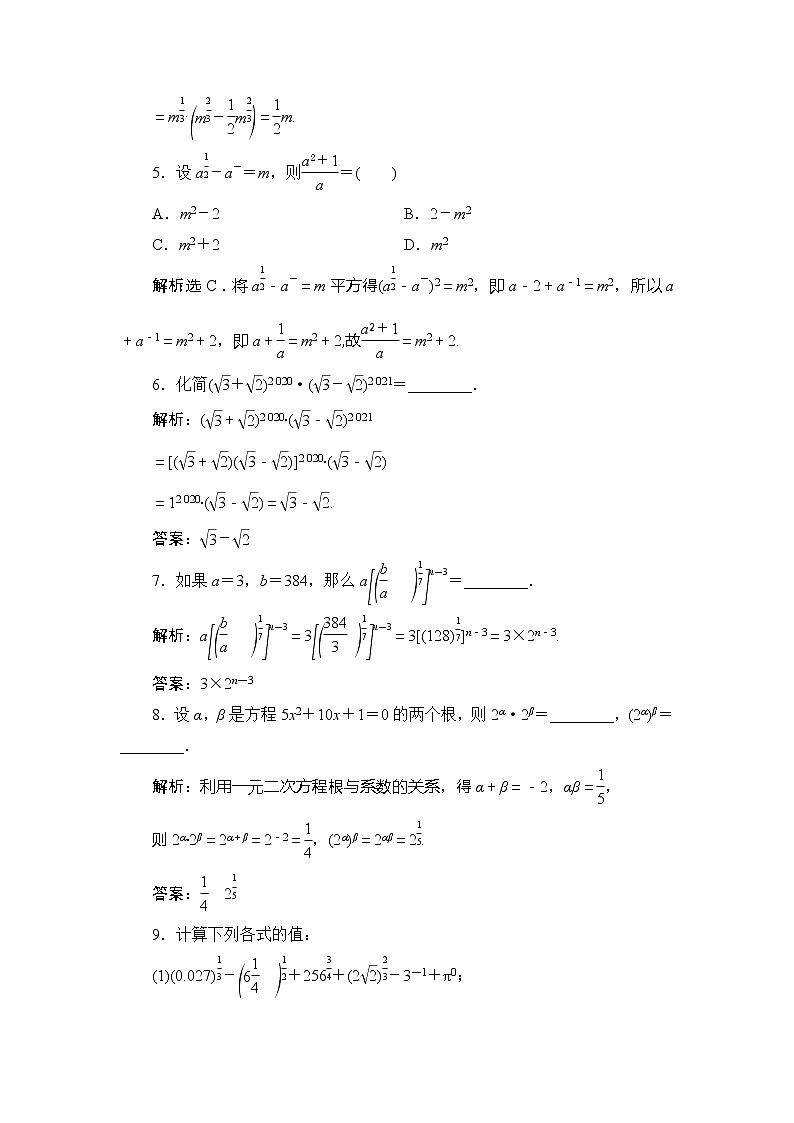 ＝m^{1/3}·(m^{2/3}－\frac{1}{2}m^{2/3})＝\frac{1}{2}m.
5．设 a^{1/2}－a^{－}＝m，则\frac{a²＋1}{a}＝(　　)
A．m²－2　　B．2－m²
C．m²＋2　　D．m²
解析选 C．将 a^{1/2}－a^{－}＝m 平方得(a^{1/2}－a^{－})²＝m²，即 a－2＋a^{－1}＝m²，所以 a
＋a^{－1}＝m²＋2，即 a＋\frac{1}{a}＝m²＋2,故\frac{a²＋1}{a}＝m²＋2.
6．化简(√3＋√2)^{2 020}·(√3－√2)^{2 021}＝________．
解析：(√3＋√2)^{2 020}·(√3－√2)^{2 021}
＝[(√3＋√2)(√3－√2)]^{2 020}·(√3－√2)
＝1^{2 020}·(√3－√2)＝√3－√2.
答案：√3－√2
7．如果 a＝3，b＝384，那么 a[(\frac{b}{a})^{1/7}]^{n－3}＝________．
解析：a[(\frac{b}{a})^{1/7}]^{n－3}＝3[(\frac{384}{3})^{1/7}]^{n－3}＝3[(128)^{1/7}]^{n－3}＝3×2^{n－3}.
答案：3×2^{n－3}
8．设 α，β 是方程 5x²＋10x＋1＝0 的两个根，则 2^α·2^β＝________，(2^α)^β＝
________．
解析：利用一元二次方程根与系数的关系，得 α＋β＝－2，αβ＝\frac{1}{5}，
则 2^α·2^β＝2^{α＋β}＝2^{－2}＝\frac{1}{4}，(2^α)^β＝2^{αβ}＝2^{1/5}.
答案：\frac{1}{4}　2^{1/5}
9．计算下列各式的值：
(1)(0.027)^{1/3}－(6\frac{1}{4})^{1/2}＋256^{3/4}＋(2√2)^{2/3}－3^{－1}＋π⁰；